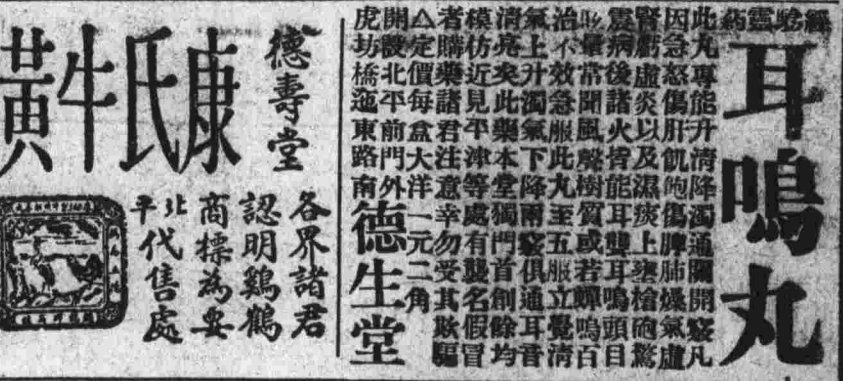 經騐靈葯
耳鳴丸
此丸專能升清降濁通關開竅凡
因急怒傷肝飢飽傷脾肺燥氣虛
腎虧虛炎以及濕痰上壅槍砲驚
震病後諸火皆能耳聾耳鳴頭目
眩暈常聞風聲樹質或若蟬鳴百
治不效急服此丸至五服立覺清
氣上升濁氣下降兩竅俱通耳音
清亮矣此藥本堂獨門首創餘均
模仿近見平津等處有襲名假冒
者購藥諸君注意幸勿受其欺騙
△定價每盒大洋一元二角
開設北平前門外
虎坊橋迤東路南
德生堂
德壽堂
康氏牛黃
各界諸君
認明鷄鶴
商標為要
北平代售處